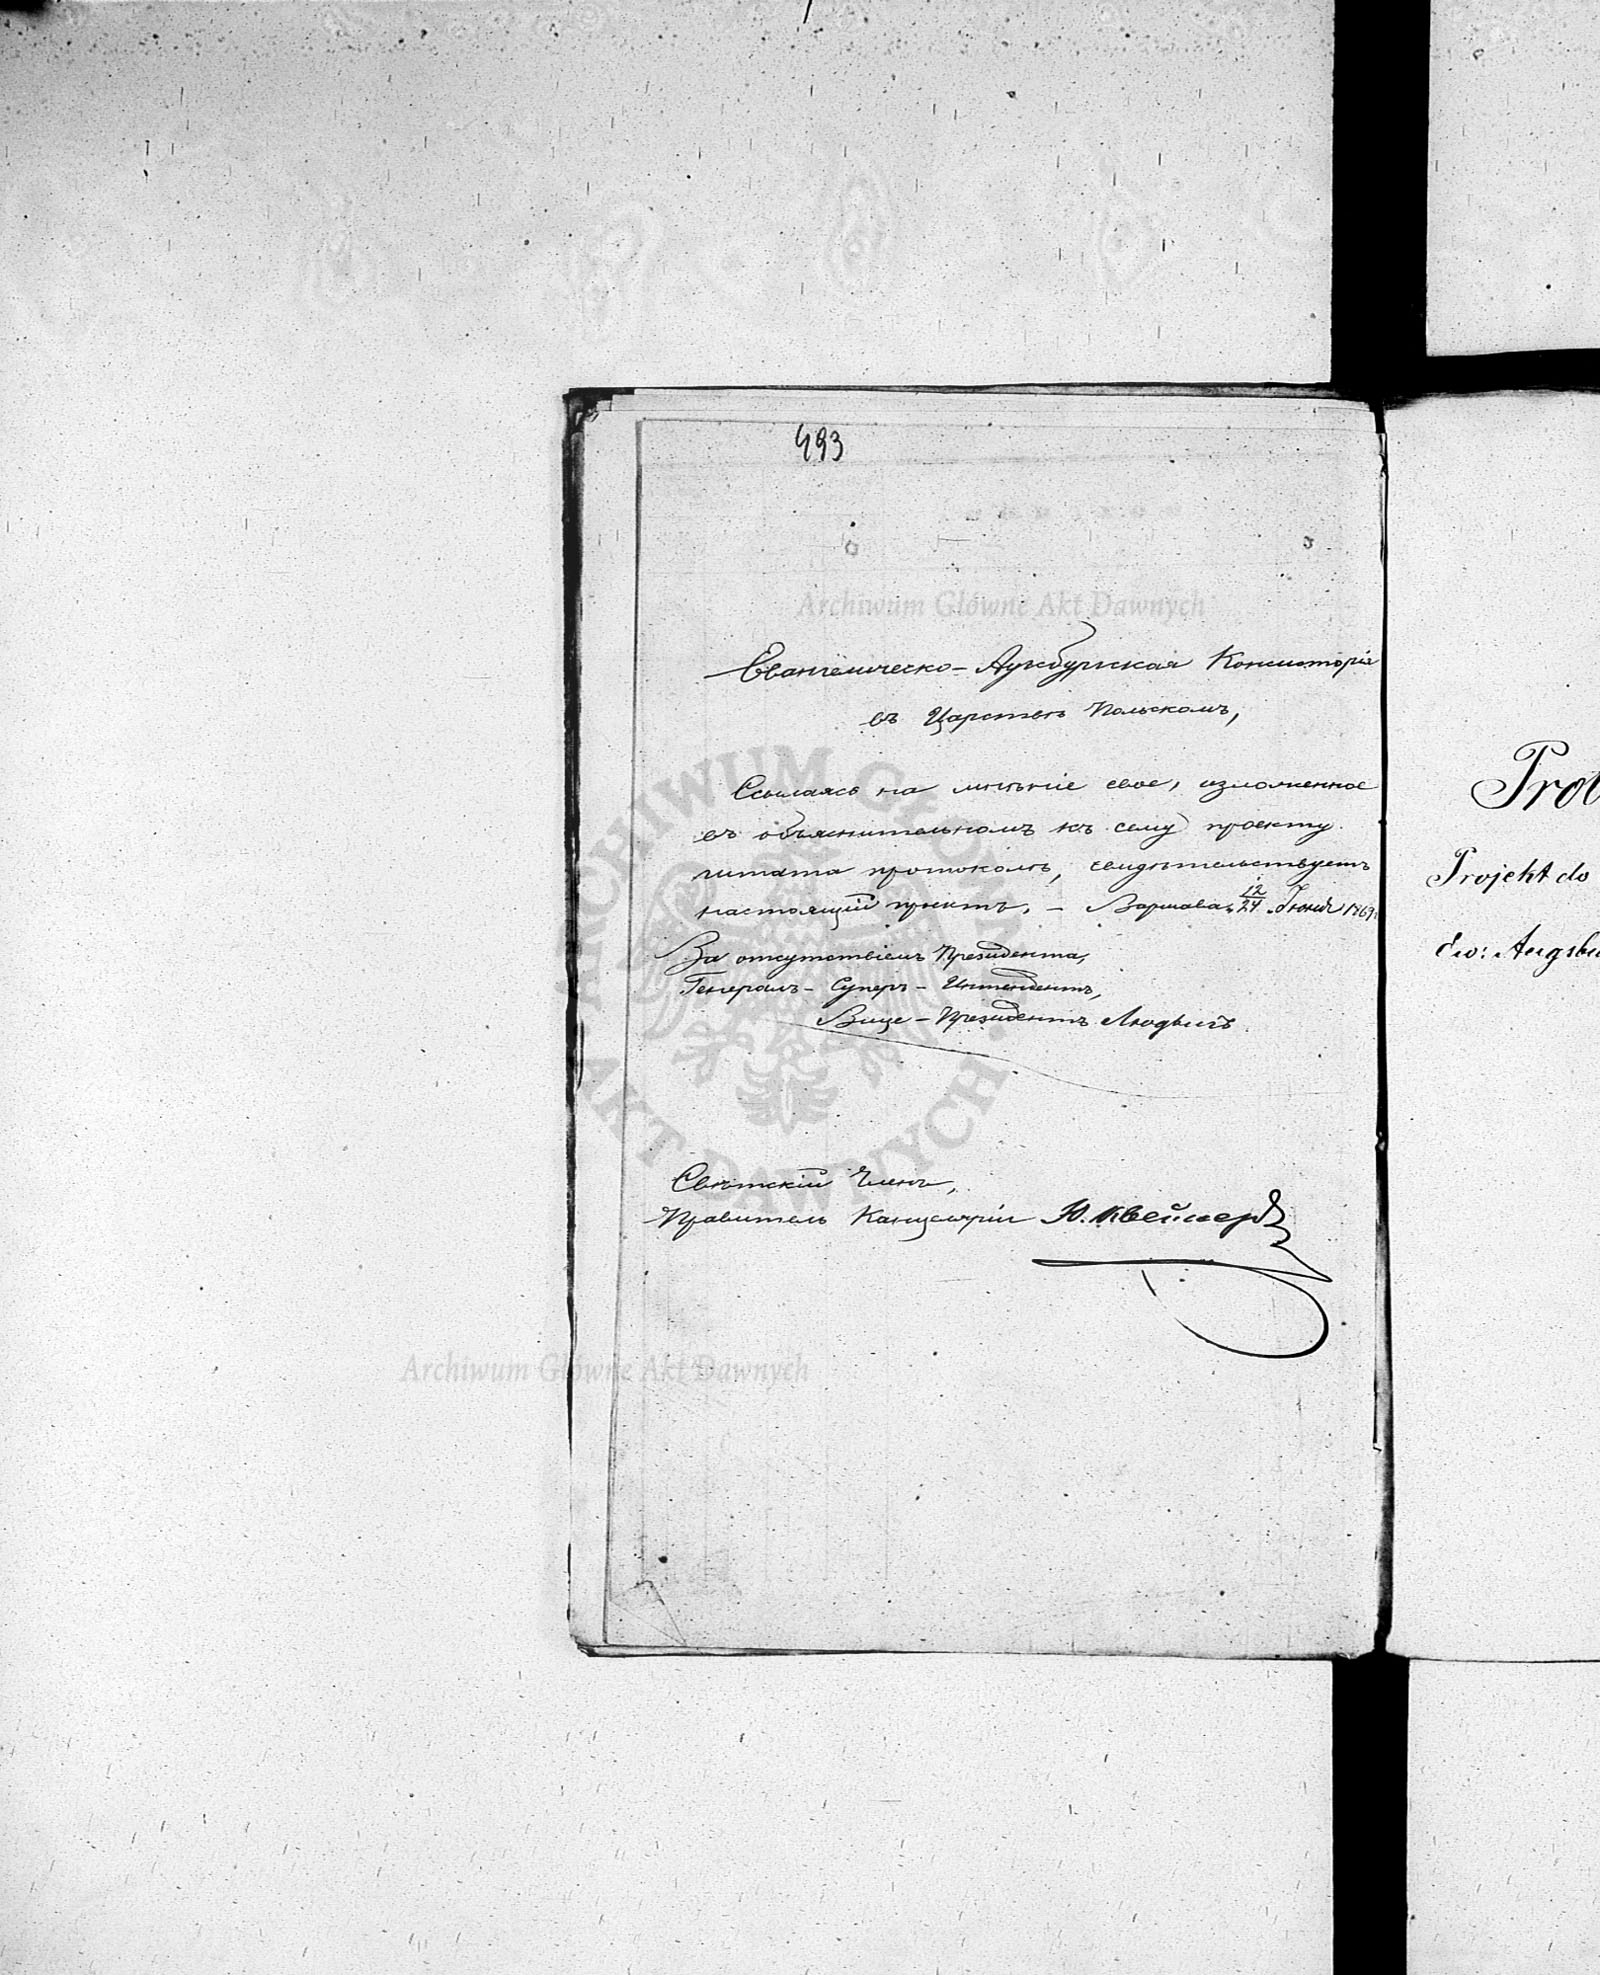 493
Евангелическо-Аугсбургская Консисторія
въ Царствѣ Польскомъ,
Ссылаясь на мнѣніе свое, изложенное
въ объяснительномъ къ сему проекту
штата протоколѣ, свидѣтельствуетъ
настоящій проектъ. — Варшава, 12/24 Іюня 1869 г.
За отсутствіемъ Президента,
Генералъ-Суперъ-Интендентъ,
Вице-Президентъ Людвигъ
Свѣтскій Членъ,
Правитель Канцеляріи Ю.
Prot
Projekt do
Ew: Augsbu
Archiwum Główne Akt Dawnych
ARCHIWUM GŁÓWNE AKT DAWNYCH
Archiwum Główne Akt Dawnych